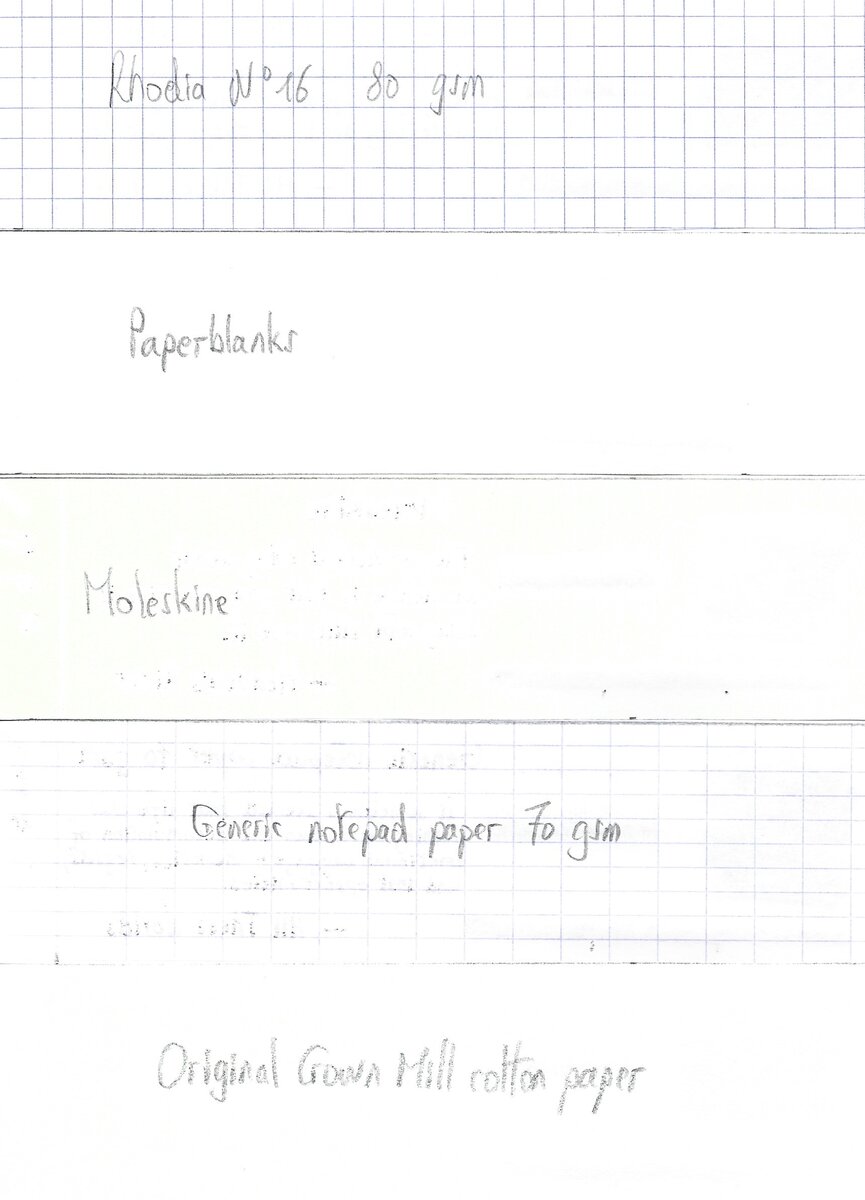 Rhodia N°16 80 gsm
Paperblanks
Moleskine
Generic notepad paper 70 gsm
Original Crown Mill cotton paper